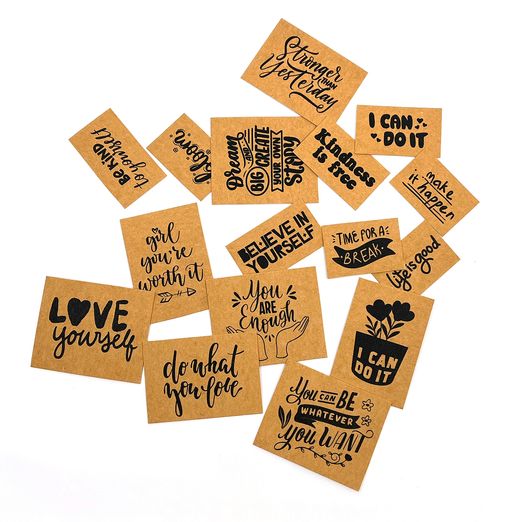 Stronger
THAN
Yesterday
I CAN
DO IT
BE KIND
to yourself
bloom
Dream
AND
BIG CREATE
YOUR OWN
Story
Kindness
is free
make
it happen
girl
you're
worth it
BELIEVE IN
YOURSELF
TIME FOR A
BREAK
life is good
LOVE
yourself
You
ARE
Enough
I CAN
DO IT
do what
you love
You CAN BE
WHATEVER
You WANT